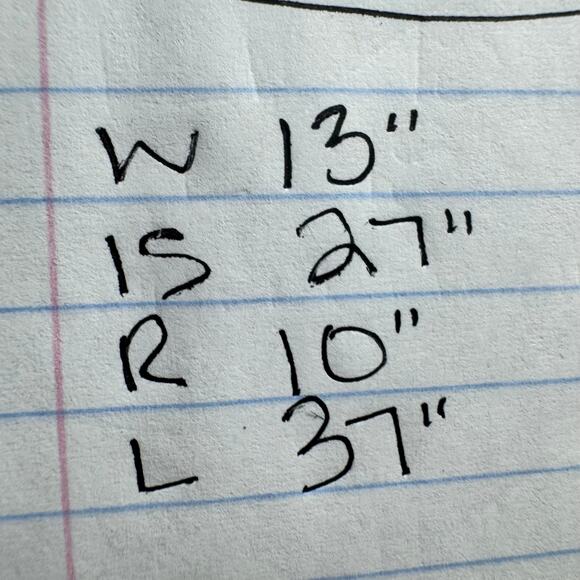 W 13"
IS 27"
R 10"
L 37"